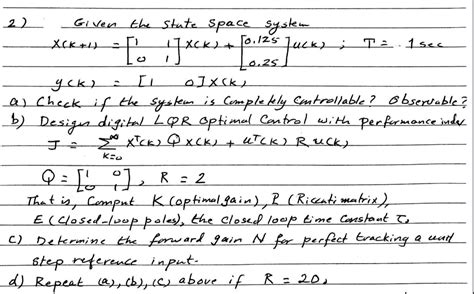 2) Given the state space system
X(k+1) = [1 1; 0 1] X(k) + [0.125; 0.25] u(k) ; T = .1 sec
y(k) = [1 0] X(k,
a) Check if the system is completely Controllable? Observable?
b) Design digital LQR optimal Control with performance index
J = ∞Σk=0 Xᵀ(k) Q X(k) + uᵀ(k) R u(k,
Q = [1 0; 0 1], R = 2
That is, Comput K (optimal gain), P (Riccati matrix),
E (Closed-loop poles), the Closed loop time Constant τ,
C) Determine the forward gain N for perfect tracking a unit
step reference input.
d) Repeat (a), (b), (c, above if R = 20,